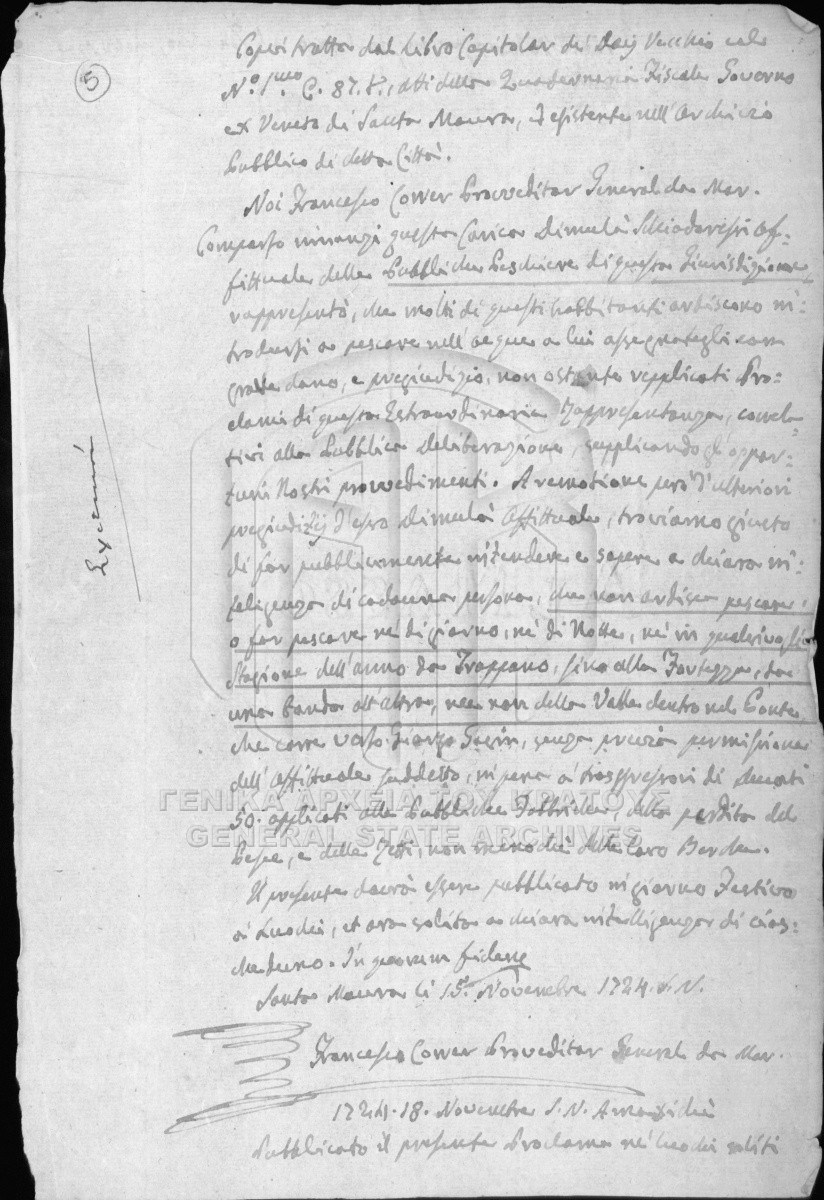 5
Copia tratta dal Libro Capitolar dei Dacij Vecchio col
N.º 1.mo C. 87. t., atti della Quadernaria Fiscale Governo
ex Veneto di Santa Maura, esistente nell'Archivio
Pubblico di detta Città.
Noi Francesco Correr Proveditor General da Mar.
Comparso innanzi questa Carica Dimulà af-
fittuale delle Pubbliche Peschiere di questa Giurisdizione
rappresentò, che molti di questi habbitanti ardiscono in:
trodursi a pescare nell'acque a lui assegnategli con
grave dano, e pregiudizio, non ostante repplicati Pro:
clami di questa Estraordinaria Rappresentanza, correla:
tivi alla Pubblica Deliberazione, supplicando gl'oppor:
tuni Nostri provvedimenti. A remotione però d'ulteriori
pregiudizij d'esso Dimulà Affittuale, troviamo giusto
di far pubblicamente intendere e sapere a chiara in:
teligenza di cadauna persona, che non ardisca pescare
o far pescare nè di giorno, nè di Notte, nè in qualsivogli
Stagione dell'anno da Trappano, sino alla Fortezza, da
una banda all'altra, nec non della Valle dentro nel Ponte
che corre verso senza precisa permissione
dell'Affittuale suddetto, in pena a' trasgressori di Ducati
50. applicati alle Pubbliche Fabbriche, della perdita del
Pesce, e delle Retti, non meno che delle loro Barche.
Il presente dovrà essere pubblicato in giorno Festivo
a' Luochi, et ora solita a chiara intelligenza di cias:
cheduno. In quorum fidem
Santa Maura li 15. Novembre 1724. S. N.
Francesco Correr Proveditor General da Mar.
1724. 18. Novembre S. N. Amaxichi
Pubblicato il presente Proclama nè luochi soliti
ΓΕΝΙΚΑ ΑΡΧΕΙΑ ΤΟΥ ΚΡΑΤΟΥΣ
GENERAL STATE ARCHIVES